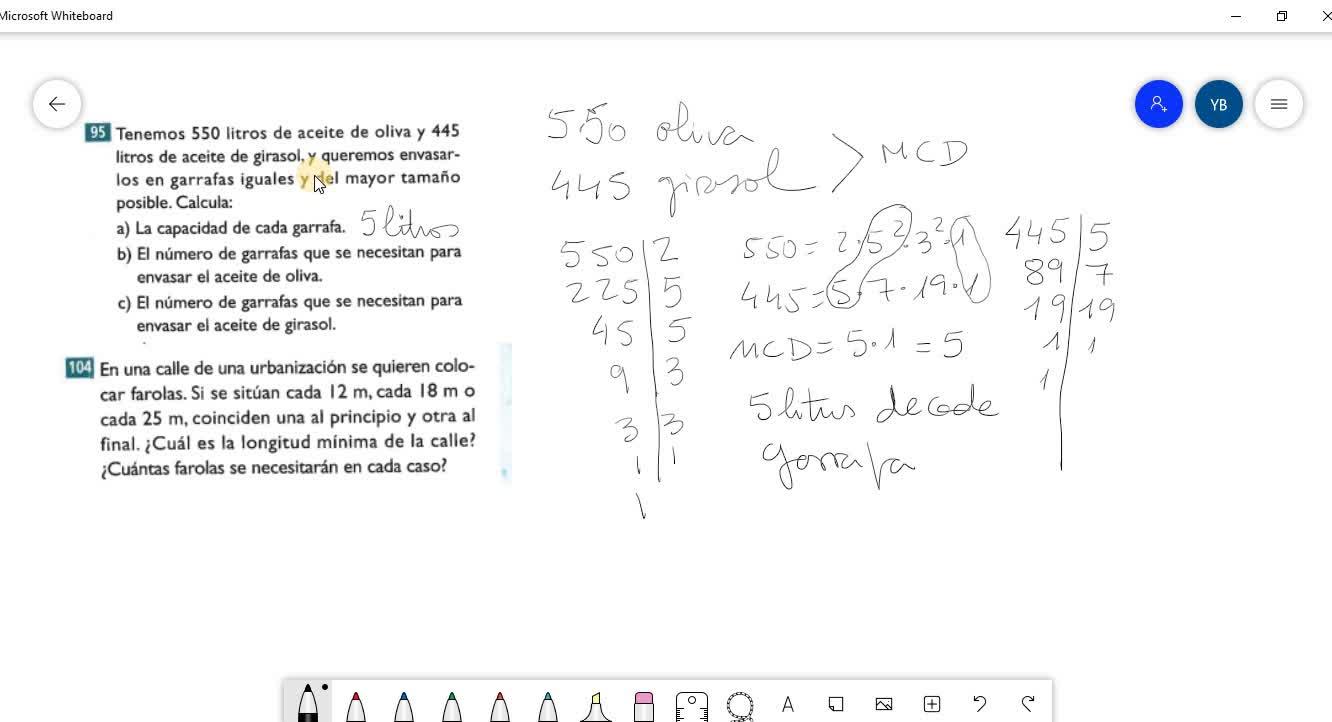 Microsoft Whiteboard
YB
95 Tenemos 550 litros de aceite de oliva y 445
litros de aceite de girasol, y queremos envasar-
los en garrafas iguales y del mayor tamaño
posible. Calcula:
a) La capacidad de cada garrafa. 5 litros
b) El número de garrafas que se necesitan para
envasar el aceite de oliva.
c) El número de garrafas que se necesitan para
envasar el aceite de girasol.
104 En una calle de una urbanización se quieren colo-
car farolas. Si se sitúan cada 12 m, cada 18 m o
cada 25 m, coinciden una al principio y otra al
final. ¿Cuál es la longitud mínima de la calle?
¿Cuántas farolas se necesitarán en cada caso?
550 oliva
445 girasol > MCD
550 | 2
225 | 5
45 | 5
9 | 3
3 | 3
1 | 1
1
550 = 2·5²·3²·1
445 = 5·7·19·1
MCD = 5·1 = 5
5 litros de cada
garrafa
445 | 5
89 | 7
19 | 19
1 | 1
1
A